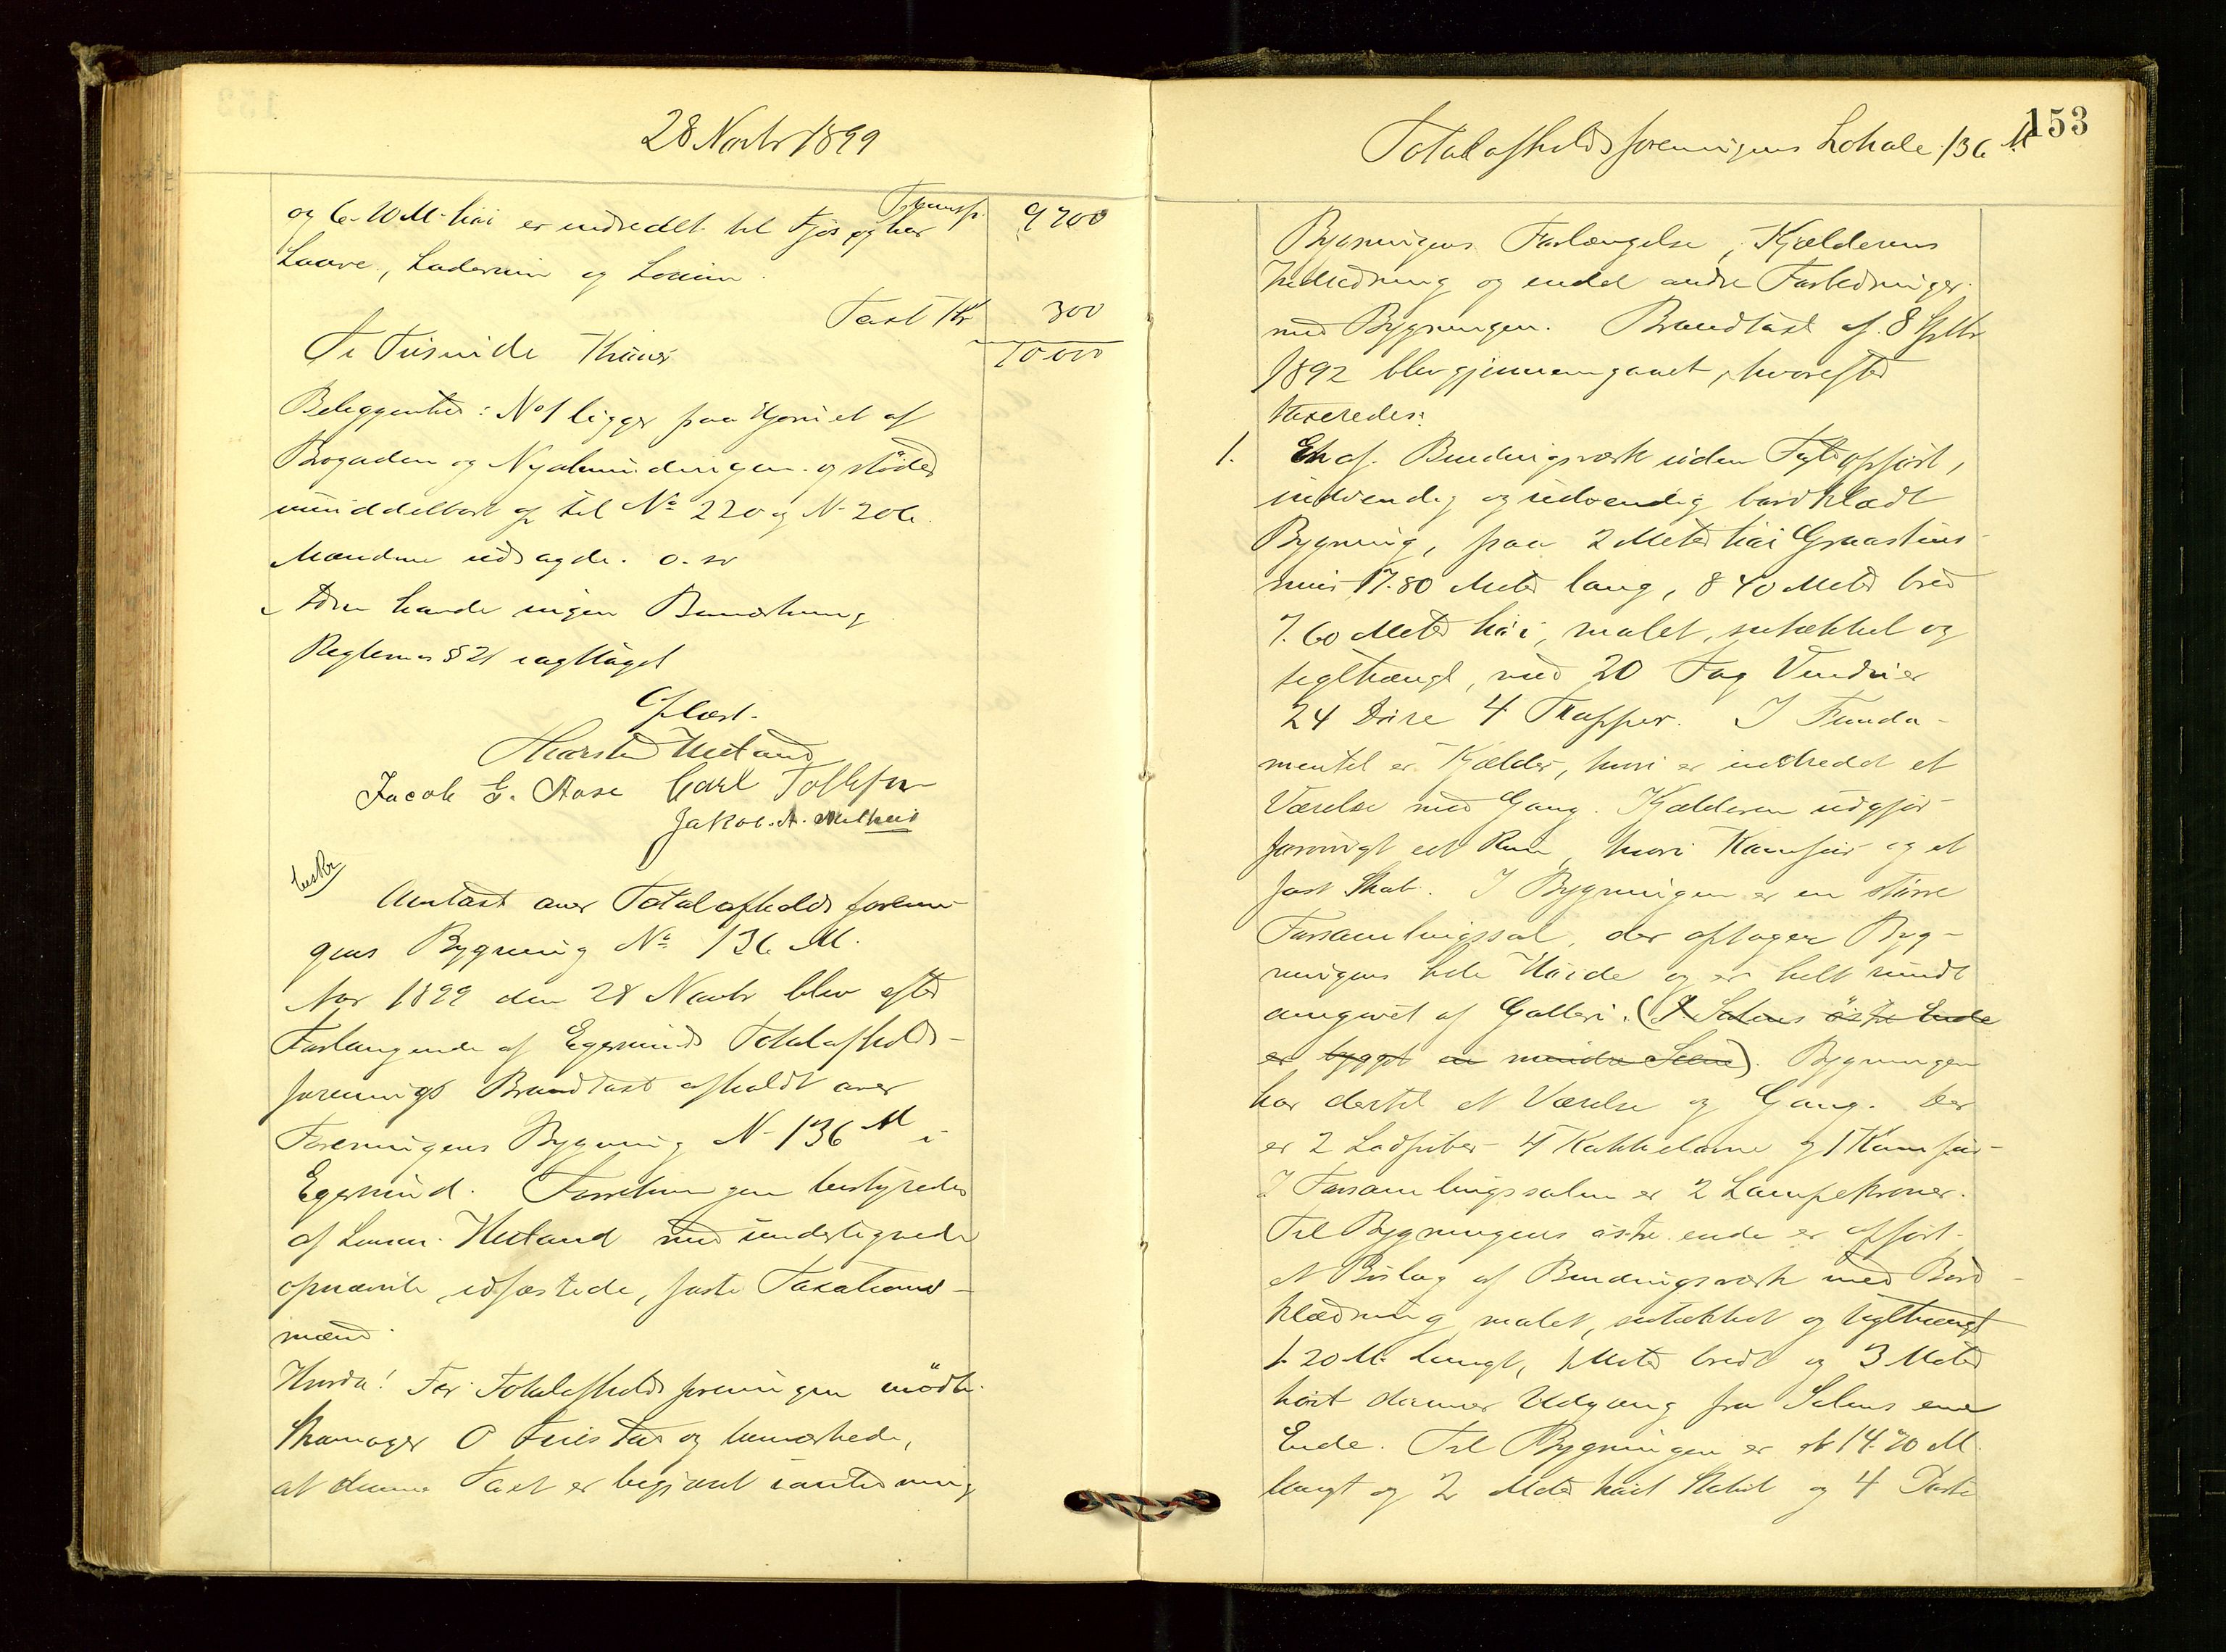 28 Novbr 1899
Transp. 9700
og 6.10 M. høi er indredet til Fjøs og har
Laave, Laderum og
Taxt Kr 300
Ti Tusinde Kroner 10000
Beliggenhed: No 1 ligger paa Hjørnet af
og Nyalmindingen og støder
umiddelbart op til No 220 og N. 206.
Mændene udsagde. o. sv
Eieren havde ingen Bemærkning
Reglem. § 21 iagttaget
Oplæst.
Hetland
Jacob G. Aase Carl Tollefsen
Jakob. A.
beskr
Omtaxt over Totalafholdsforenin-
gens Bygning No 136 M.
Aar 1899 den 28 Novbr blev efter
Forlangende af Egersunds Totalafholds-
forenings Brandtaxt afholdt over
Foreningens Bygning N. 136 M i
Egersund. Forretningen bestyredes
af Lensm. Hetland med undertegnede
opnævnte edfæstede, faste Taxations-
mænd.
Hvorda! For Totalafholdsforeningen mødte
Skomager O og bemærkede,
at denne Taxt er begjært i anledning
153
Totalafholdsforeningens Lokale 136 M
Bygningens Forlængelse, Kjælderens
Indredning og endel andre Forbedringer
ved Bygningen. Brandtaxt af 8 Septbr
1892 blev gjennemgaaet, hvorefter
taxeredes:
1. En af Bindingsværk uden Fyld opført,
indvendig og udvendig bordklædt
Bygning, paa 2 Meter høi Graastens-
mur 17.80 Meter lang, 8 40 Meter bred
7.60 Meter høi, malet, sutækket og
teglhængt, med 20 Fag Vinduer
24 Døre 4 Trapper. I Funda-
mentet er Kjælder, hvori er indredet et
Værelse med Gang. Kjælderen udgjør
forøvrigt et Rum, hvori Komfur og et
fast Skab. I Bygningen er en større
Forsamlingssal, der optager Byg-
ningens hele Høide og er helt rundt
omgivet af Galleri. (I Salens østre Ende
er bygget en mindre Scene). Bygningen
har dertil et Værelse og Gang. Der
er 2 Ladpiber 4 Kakkelovne og 1 Komfur
I Forsamlingssalen er 2 Lampekroner.
Til Bygningens østre ende er opført
et Bislag af Bindingsværk med Bord-
klædning malet, sutækket og teglhængt
1.20 M. langt, 1 Meter bredt og 3 Meter
høit danner Udgang fra Salens ene
Ende. Til Bygningen er et 14.70 M.
langt og 2 Meter høit Stakit og 4 Porte